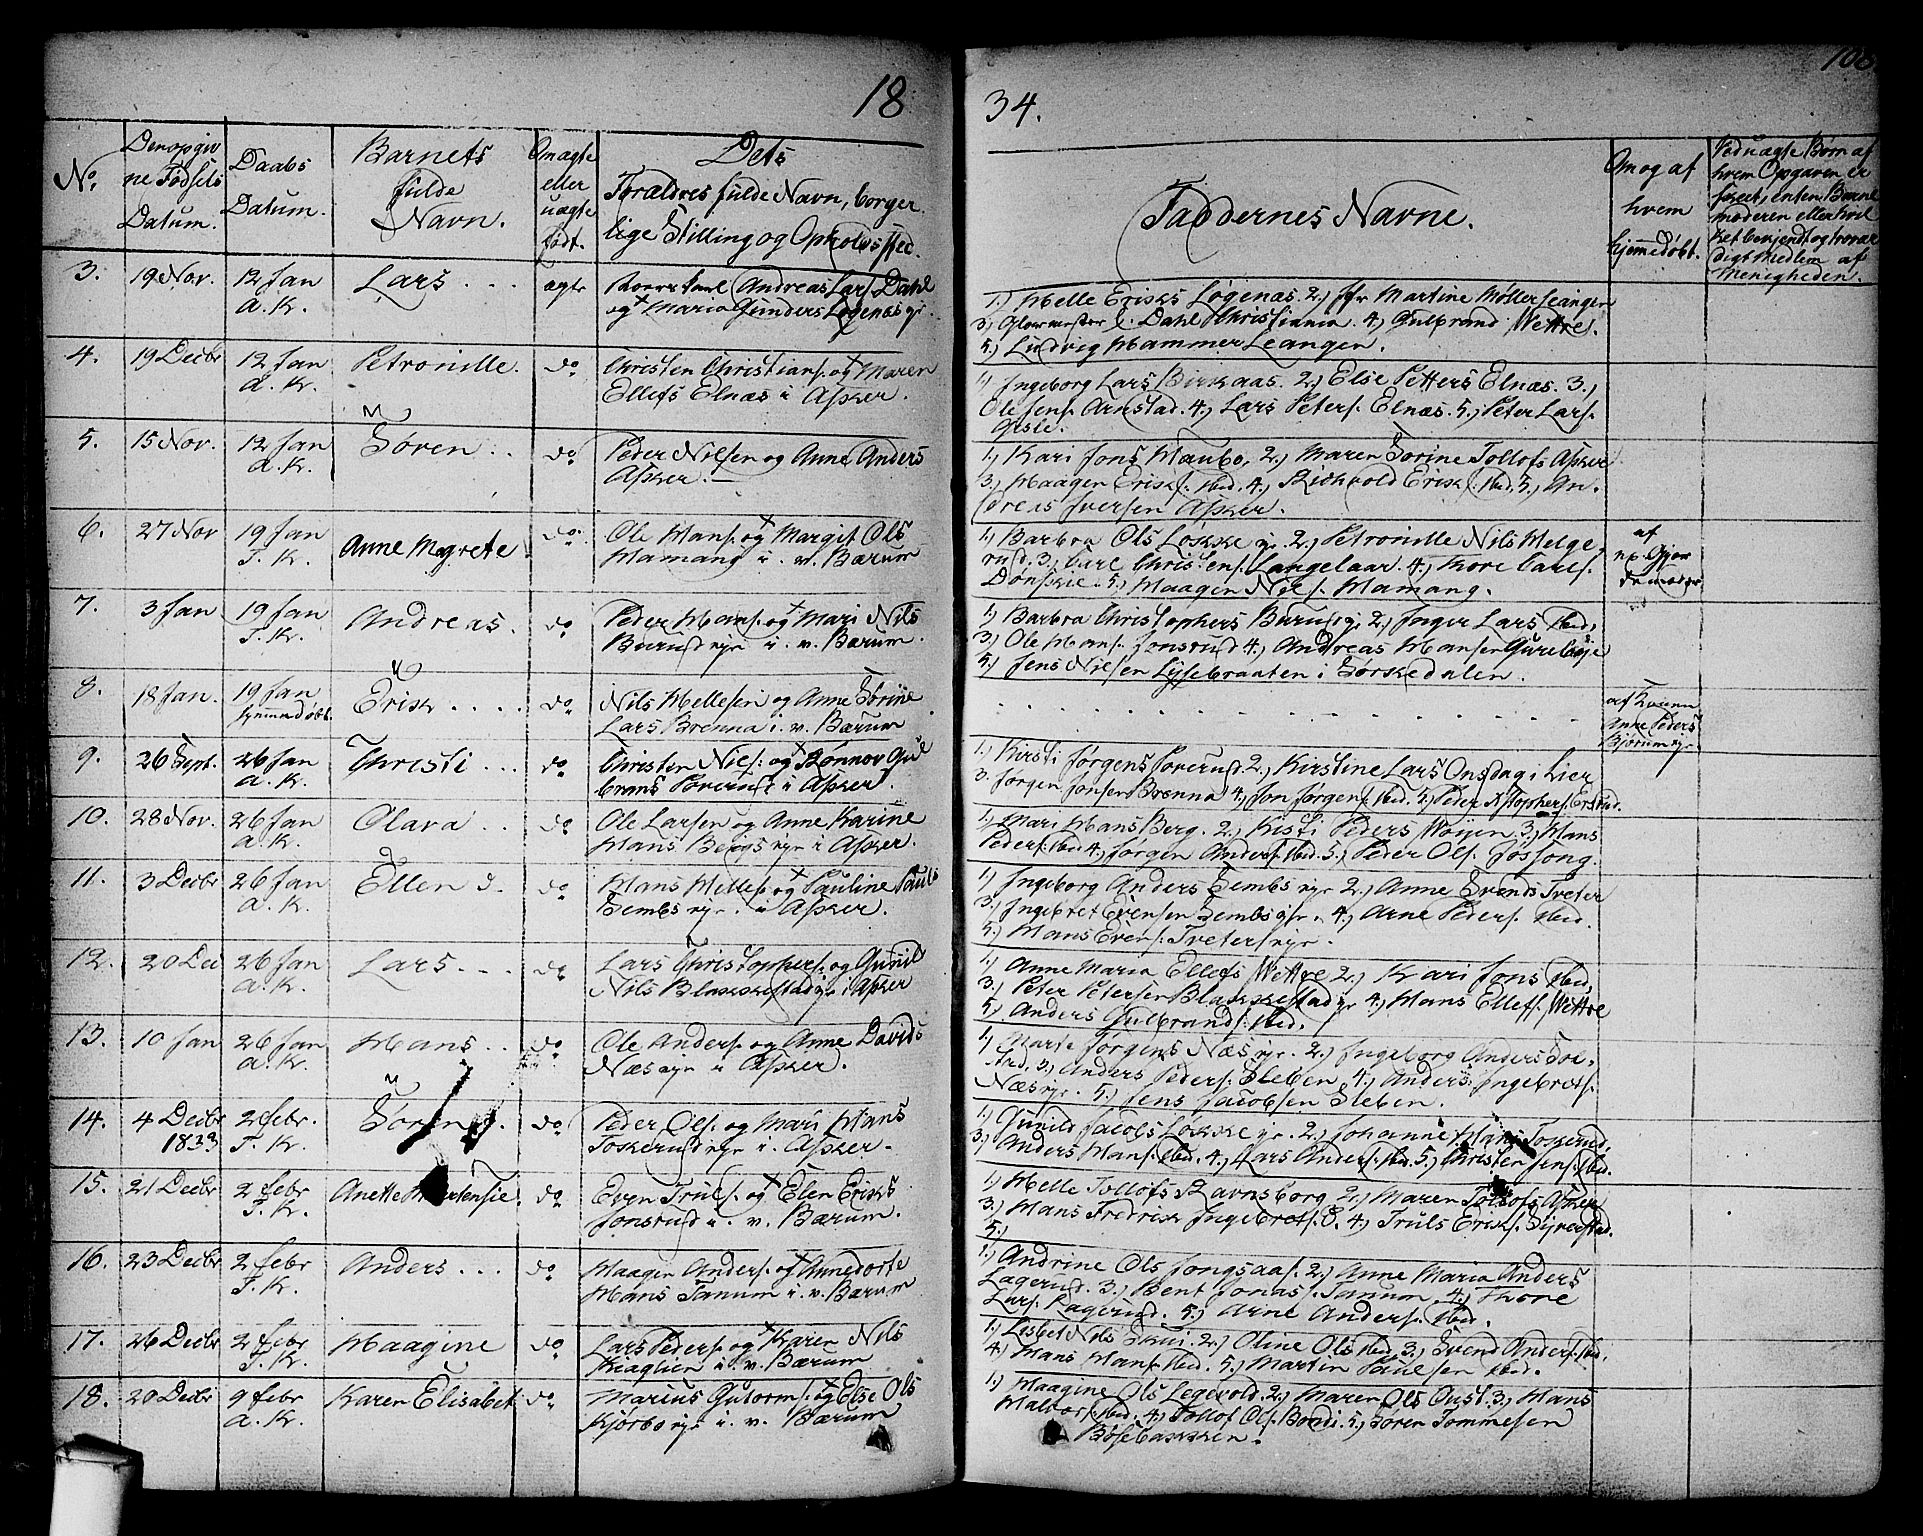 18
34.
No.
Den opgiv
ne Fødsels
Datum.
Daabs
Datum.
Barnets
fulde
Navn.
Om ægte
eller
uægte
født.
Dets
Forældres fulde Navn, borger
lige Stilling og Opholdssted.
Faddernes Navne.
Om og af
hvem
hjemmedøbt.
Ved uægte Børn af
hvem Opgaven er
skeet, enten Barne
moderen eller hvil
ket bekjendt og trovær
digt Medlem af
Menigheden.
3. 19 Nov. 12 Jan
a. K.
Lars . . .
ægte
Andreas Lars. Dahl
og + Maria Gunders Løgenæs
1.) Helle Eriks Løgenæs. 2.) Martine Møller Leangen
3.) Dahl Christiania. 4.) Gulbrand Wettre.
5.) Ludvig Hammer Leangen.
4. 19 Decbr 12 Jan
a. K.
Petronille.
do
Christen Christians. og + Maren
Ellefs Elnæs i Asker.
1.) Ingeborg Lars Birkaas. 2.) Else Petters Elnæs. 3.)
Ole Jens. Arnstad. 4.) Lars Peters. Elnæs. 5.) Peter Lars.
Gisle.
5. 15 Nov. 12 Jan
a. K.
Søren . .
do
Peder Nilsen og Anne Anders
Asker. —
1.) Kari Jons Haubo, 2.) Maren Sorine Tollofs Asker
3.) Haagen Eriks. ibid. 4.) Erik ibid. 5.) An.
dreas Iversen Asker.
6. 27 Nov 19 Jan
T. K.
Anne Magrete
do
Ole Hans. og + Margit Ols
Hamang i. v. Bærum
1.) Barbra Ols Løkke ejr. 2.) Petronille Nils Helge,
rud. 3.) Carl Christens. Langelaar. 4.) Thore Carls.
Dønski. 5.) Haagen Niels. Hamang.
af
7. 3 Jan 19 Jan
T. K.
Andreas.
do
Peder Hans. og + Mari Nils
Burud ejr i. v. Bærum.
1.) Barbra Christophers Burud 2.) Inger Lars ibid,
3.) Ole Hans. Jonsrud 4.) Andreas Hansen
5.) Jens Nielsen Lysebraaten i Sørkedalen.
8. 18 Jan. 19 Jan
hjemmedøbt.
Erik . . . .
do
Nils Hellesen og Anne Sørine
Lars Brenna i. v. Bærum
af Kvinn
Anne Peders
Bjørum ejr.
9. 26 Sept. 26 Jan
a. K.
Christi . . .
do
Christen Niels. og + Rønnov Gul
brans Poverud i Asker.
1.) Kirsti Jørgens Poverud. 2.) Kirstine Lars Onsdag i Lier
3. Jørgen Jonsen Brenna 4.) Jon Jørgens. ibid. 5.) Peder
10. 28 Nov. 26 Jan
a. K.
Olava . .
do
Ole Larsen og Anne Karine
Hans Bergs ejr i Asker.
1.) Mari Hans Berg. 2.) Kisti Peders Woien. 3.) Hans
Peders. ibid 4.) Jørgen Anders. ibid. 5.) Peder Ols. Jøssong.
11. 3 Decbr 26 Jan
a. K.
Ellen
do
Hans Helles. og + Pauline Pauls
Sembs ejr. i Asker.
1.) Ingeborg Anders Sembs ejr 2.) Anne Svends Treter
3.) Ingebret Evensen Sembs ejr. 4.) Arne Peders. ibid.
5.) Hans Evens. Treters ejr.
12. 20 Dec 26 Jan
a. K.
Lars . . .
do
Lars Christophers. og Gunild
Nils Blakkestad ejr i Asker
1.) Anne Maria Ellefs Wettre 2.) Kari Jons ibid,
3.) Peter Petersen Blakkestad ejr 4.) Hans Ellefs. Wettre
5.) Anders Gulbrands. ibid.
13. 10 Jan 26 Jan
a. K.
Hans . .
do
Ole Anders. og Anne Davids
Næs ejr i Asker.
1.) Marte Jørgens Næs ejr. 2.) Ingeborg Anders
3.) Anders Peders. Sleben. 4.) Anders Ingebrets.
Næs ejr. 5.) Jens Jacobsen Sleben.
14. 4 Decbr 2 febr.
1833 T. K.
do
Peder Ols. og Mari Hans
Toskerud ejr i. Asker.
1.) Gunild Jacobs Løkke ejr. 2.) Johanne Hans Toskerud.
3.) Anders Hans. ibid. 4.) Lars Anders. ibid. 5.) Christen Jens. ibid.
15. 21 Decbr 2 febr
T. K.
Anette
do
Even Truls. og + Elen Eriks
Jonsrud i. v. Bærum.
1.) Helle Tollofs Ravnsborg 2.) Maren Tollofs Asker
3.) Hans Fredrik Ingebrets. 4.) Truls Eriks.
5.)
16. 23 Decbr 2 febr
T. K.
Anders . . .
do
Haagen Anders. og + Annedorte
Hans Tanum i. v. Bærum
1.) Andrine Ols Jongsaas. 2.) Anne Maria Anders
Lagerud. 3.) Bent Jonas. Tanum. 4.) Thore
Lars. Lagerud. 5.) Arne Anders. ibid.
17. 26 Decbr 2 febr
T. K.
Haagine
do
Lars Peders. og + Karen Nils
i v. Bærum
1.) Lisbet Nils Skui. 2.) Oline Ols ibid. 3.) Svend Anders. ibid.
4.) Hans Hans. ibid. 5.) Martin Paulsen ibid.
18. 20 Decbr 9 febr
a. K.
Karen Elisabet.
do
Marius Gutorm. og Else Ols
Kjørbo ejr i. v. Bærum
1.) Haagine Ols Legevold. 2.) Maren Ols Oust. 3.) Hans
Halvors. ibid. 4.) Tollof Ols. Bondi. 5.) Søren Tommesen
Bøsebakken.